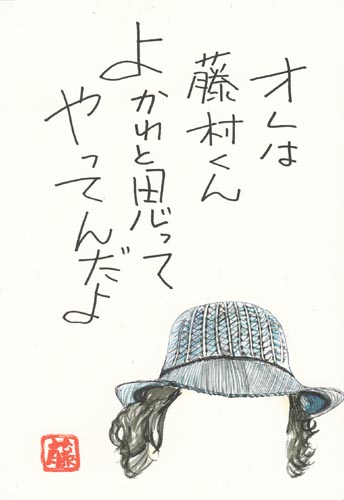 オレは
藤村くん
よかれと思って
やってんだよ
藤